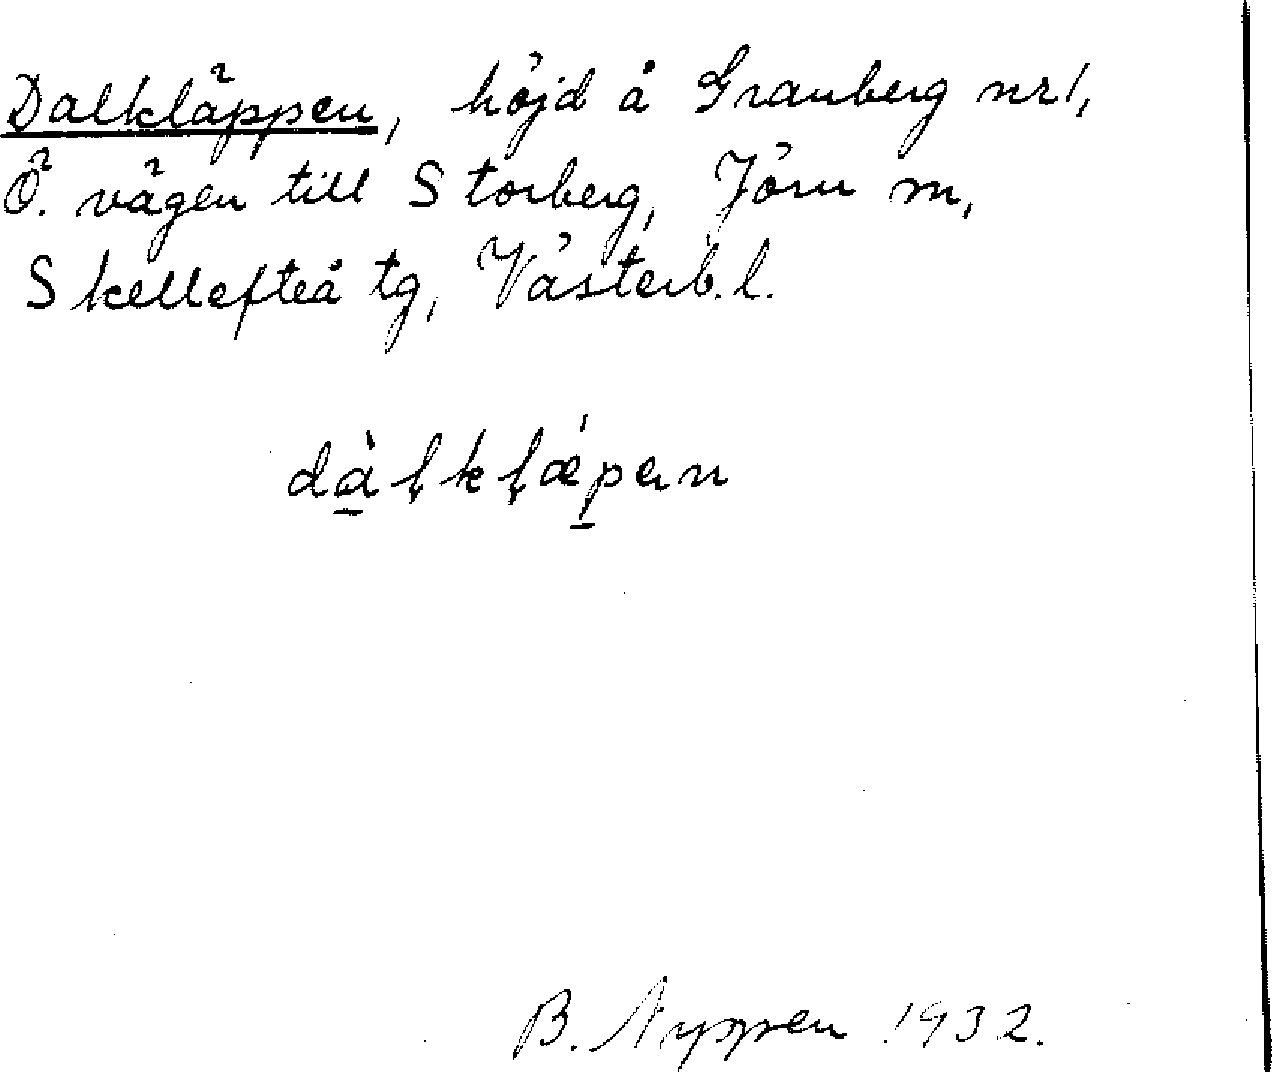 Dalkläppen, höjd å Granberg nr 1,
Ö. vägen till Storberg, Jörn m,
Skellefteå tg, Västerb. l.
dàļkļæ̀pen
B. Nyppen 1932.